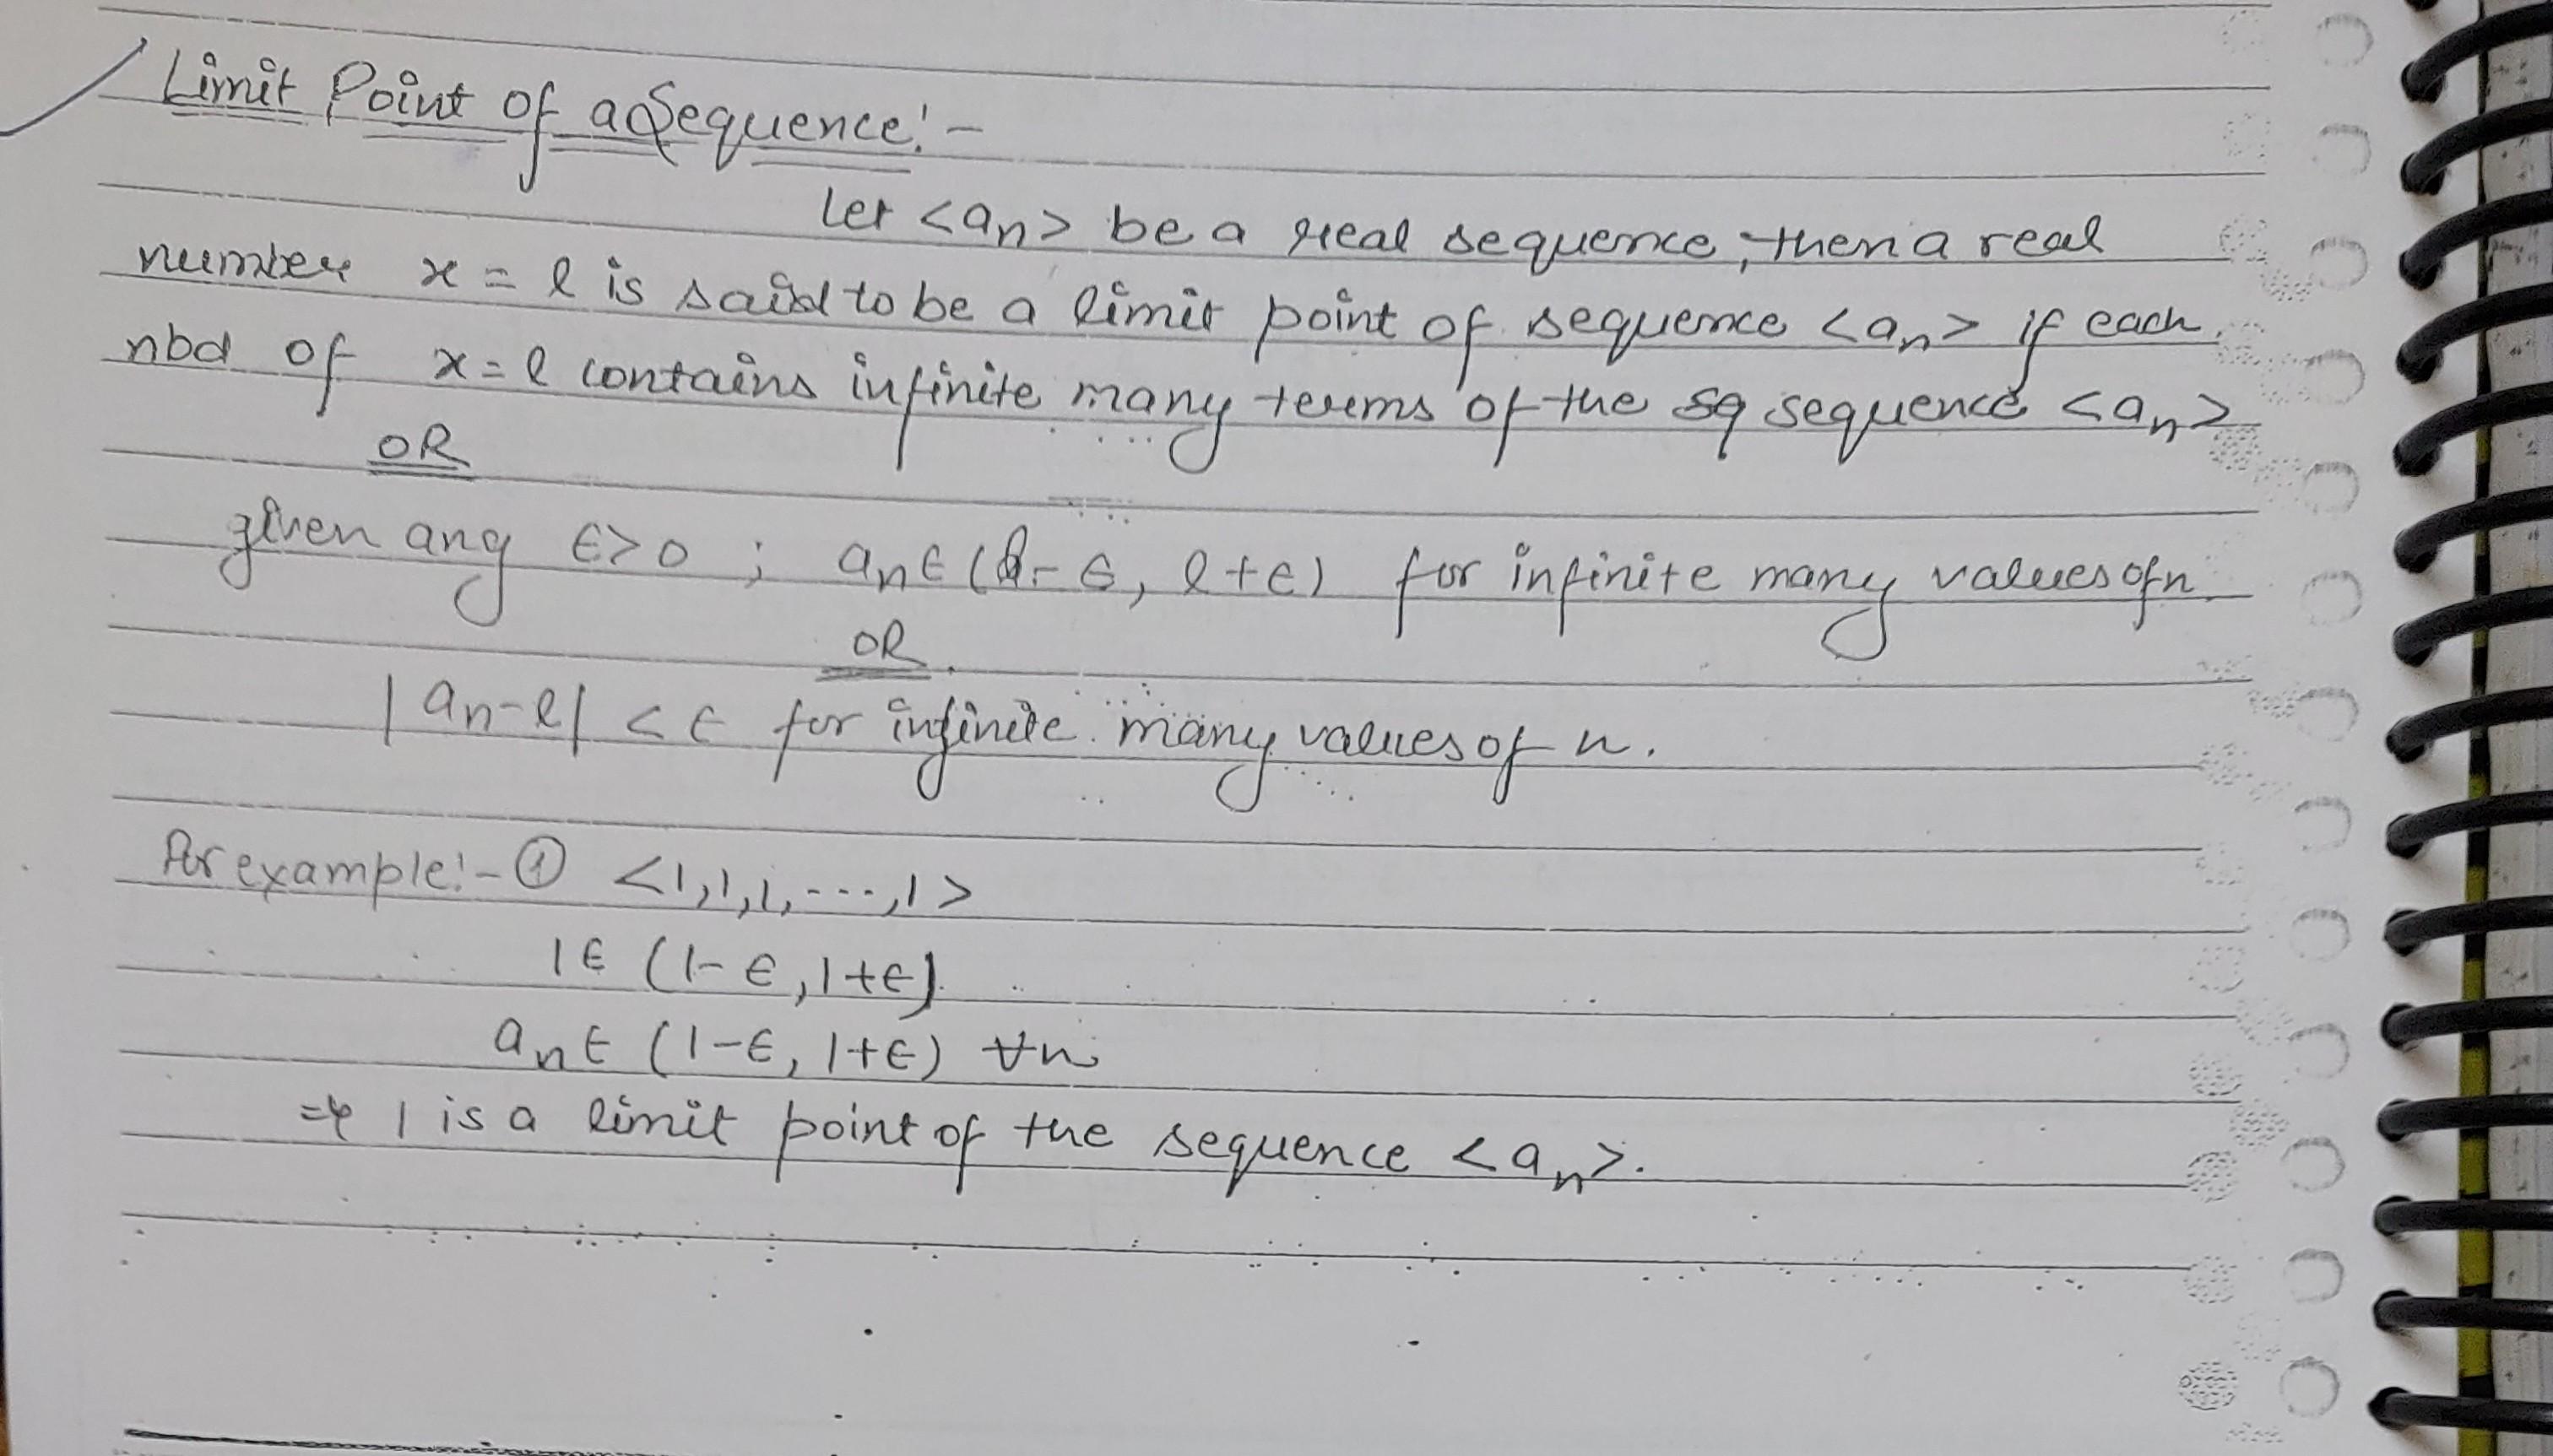 Limit Point of a Sequence:-
Let <an> be a real sequence, then a real
number x = l is said to be a limit point of sequence <an> if each
nbd of x = l contains infinite many terms of the sq sequence <an>
OR
given any ε>0 ; an∈(l-ε, l+ε) for infinite many values of n
OR
|an-l| < ε for infinite many values of n.
For example:- ① <1,1,1,----,1>
1∈ (1-ε,1+ε)
an∈ (1-ε, 1+ε) ∀n
⇒ 1 is a limit point of the sequence <an>.